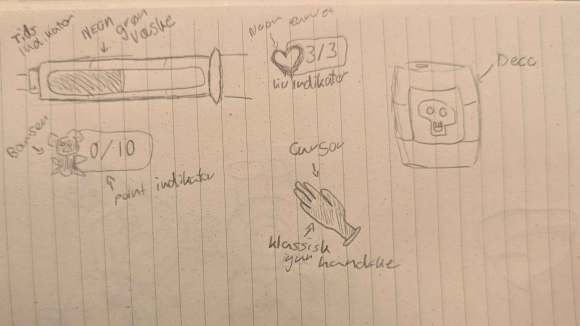 Tids indikator
NEON grøn væske
3/3
Liv indikator
Deco
Bamsen
0/10
point indikator
Cursor
klassisk
handske